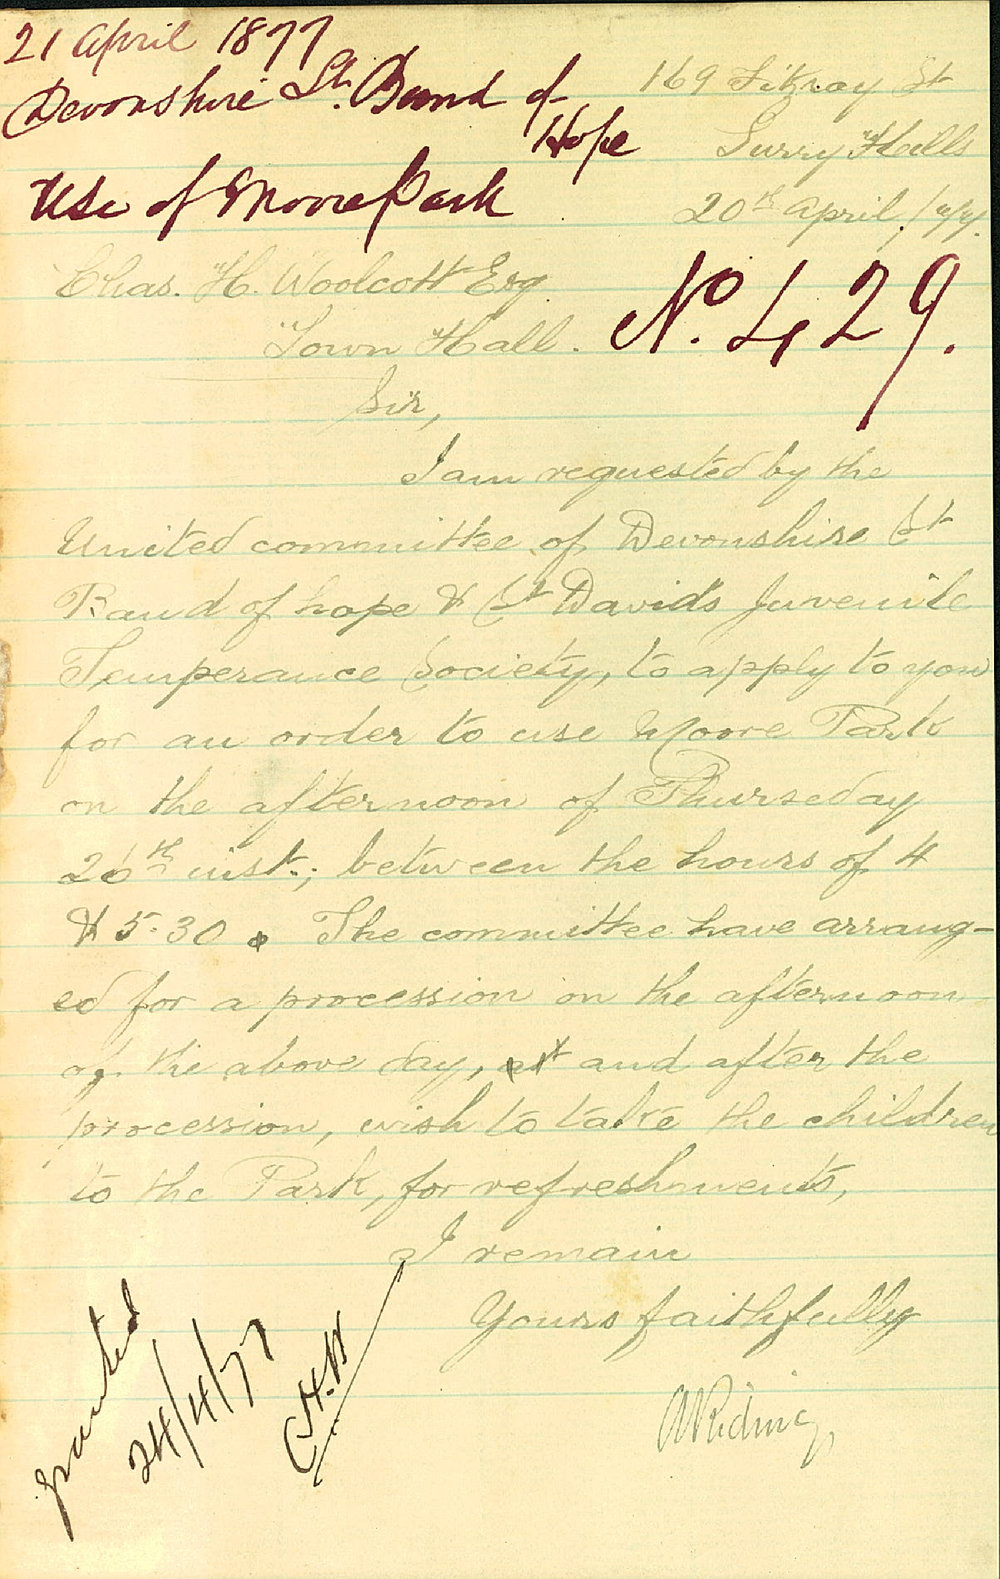 21 April 1877
Devonshire St. Band of
Hope
Use of Moore Park
169 Fitzroy St
Surry Hills
20th April /77.
Chas. H. Woolcott Esq
Town Hall.
No. 429.
Sir,
I am requested by the
United committee of Devonshire St
Band of hope & St Davids Juvenile
Temperance Society, to apply to you
for an order to use Moore Park
on the afternoon of Thurseday
26th inst.; between the hours of 4
& 5.30. The committee have arrang-
ed for a procession on the afternoon
of the above day, and after the
procession, wish to take the children
to the Park, for refreshments,
I remain
Yours faithfully
A Riding
granted
24/4/77
C.H.W